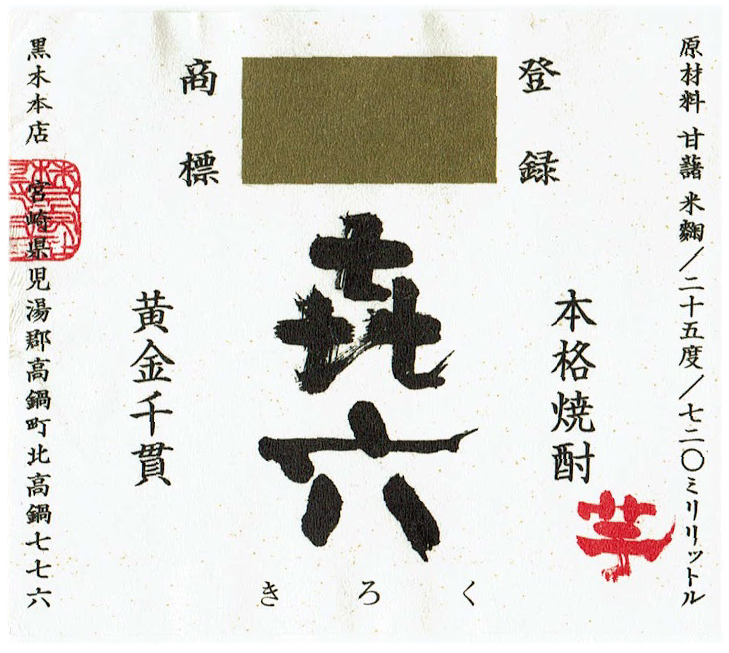 原材料 甘藷 米麴／二十五度／七二〇ミリリットル
登録
商標
本格焼酎
芋
㐂六
きろく
黄金千貫
黒木本店 宮崎県児湯郡高鍋町北高鍋七七六